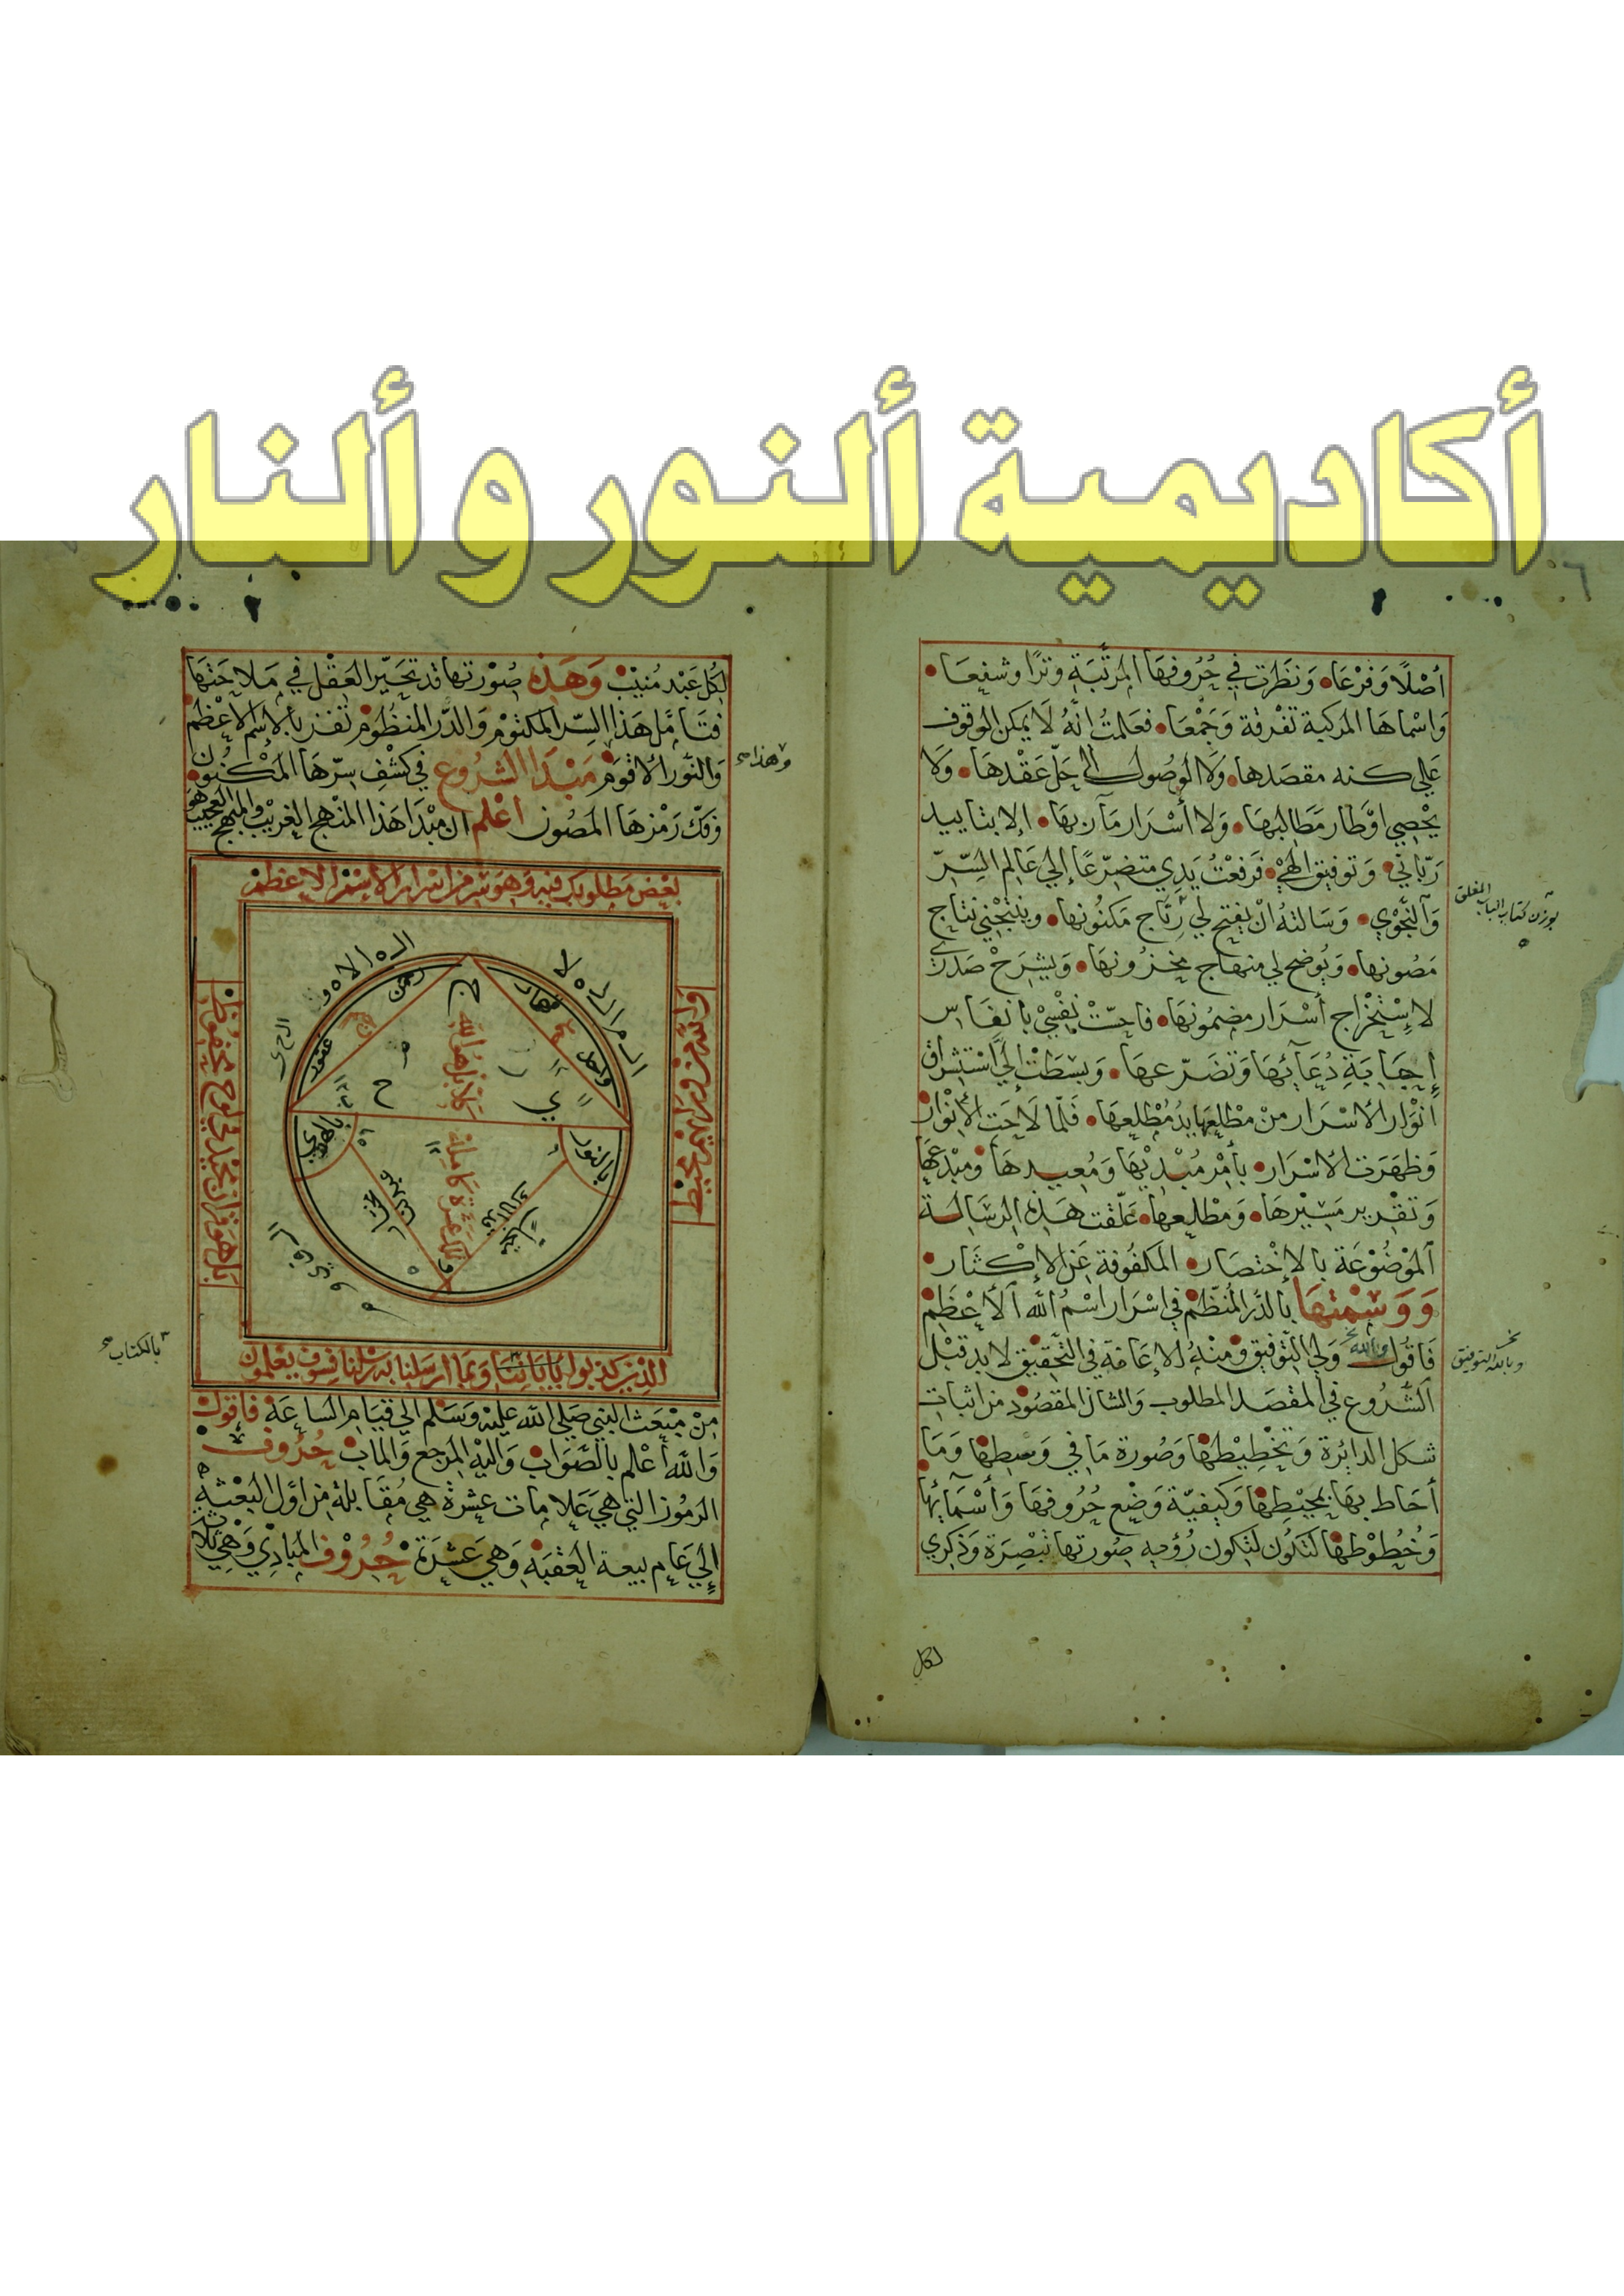 أكاديمية ألنور و ألنار
أصْلًا وَفَرْعَا وَنَظَرت في حُرُوفِهَا المرتَّبَة وترًا وشفيعَا
وَاسْمَاهَا المركبة تفْرقة وَجَمْعَا فعَلمتُ انّهُ لَا يمكن الوقوف
عَلي كنه مقصَدها وَلَا الوصُول الي حَلّ عَقْدهَا وَلَا
يحْصِي اوْطار مَطَالبهَا وَلا أسْرَار مَآربهَا إلا بتاييد
رَبّاني وَتوفيق الهيْ فَرفعْتُ يَدِي متضرّعًا إلي عَالم السِّرّ
وَالنّجْوي وَسَالتهُ انْ يفتح لي رِتَاج مَكنُونها وينتجني نتاج
مَصُونها وَيُوضح لي منهاج مخزُونهَا وَيشرَحْ صَدْري
لاِسْتخْرَاج أسْرَار مضمُونهَا فاحسّتْ نفْسِيْ بانفَاس
إجَابَةِ دُعَآئِهَا وَتضَرّعهَا وَبسَطَتْ إليَّ اسْتِشراق
أنْوَار الأسْرَار منْ مطْلعهَا يدُ مُطْلِعهَا فَلمّا لَاحَت الانْوَار
وَظهَرَت الاسْرَار بأمْر مُبْديْهَا وَمُعيدهَا ومبْدعهَا
وَتقْرير مَسيْرهَا وَمطْلعِهَا عَلّقت هَذِه الرسَالة
الموْضُوْعَة بالاِخْتصَار المكفُوفة عَن الاِكْثَار
وَوَسَمْتهَا بالدّر المُنَظّمْ في اسْرَار اسْمُ اللّه الأعْظَمْ
فَاقُول وبالله وَلي التّوفيق وَمنْهُ الإعَانَة في التّحقيق لابد قبْل
الشّرُوع في المقصَد المطلوب وَالشان المقصُود من اثبات
شكل الدائرة وَتخْطِيْطهَا وَصُورة مَا في وَسطِهَا وَمَا
أحَاط بهَا بمحِيْطِهَا وَكيفيّة وَضْع حُرُوفهَا وَأسْمَآئِهَا
وَخُطوْطهَا لتكون رُؤيه صُورتها تبْصِرَة وَذكري
بوزن كتاب الباب المغلق
وبالله التوفيق
لكل
لِكُل عَبْد مُنيْبْ وَهَذه صُوْرتها قد تحَيّر العَقْل في مَلاحَتهَا
فتَأمَّل هَذا السِّر المكتوْم وَالدّر المنظُوم تفز بالاسْم الاعْظَمْ
وَالنُّور الاقوَم مَبْدَا الشرُوع في كشْفِ سِرّهَا المكْنُون
وَفكّ رَمْزهَا المصُون اعْلم ان مبْدَا هَذا المنهَج الغريْب والمبهج العجيب هو
بعْض مَطلوبك فيه وَهوَ سر من اسْرَار الاسْم الاعظمْ
وَاللّه من وَرَائهم محيْط
بَل هو قرآن مجيْد في لوح محفوظ
الذين كذبوا بايَاتنَا وَبمَا ارسَلنا به رسُلنا فسَوف يعْلمون
رحمن
غفور
قهار
واحد
كلا بل هو الله
ج
ح
ي
بالنور
بالهدي
تلك عشرَة كاملة
منْ مبْعَث النبي صَلي اللّه عليْه وَسَلم الي قيَام السَاعَة فاقول
وَاللّه أعْلم بالصَّوَاب وَاليْه المرجع وَالماب حُرُوف
الرمُوز التي هيَ عَلامَات عشرَة هي مُقابلة من اوّل البعْثة
إلي عَام بيعة العَقبَة وَهيَ عَشرَة حُرُوْف المبَادِي وَهي ثلاث
وهذا
بالكتاب